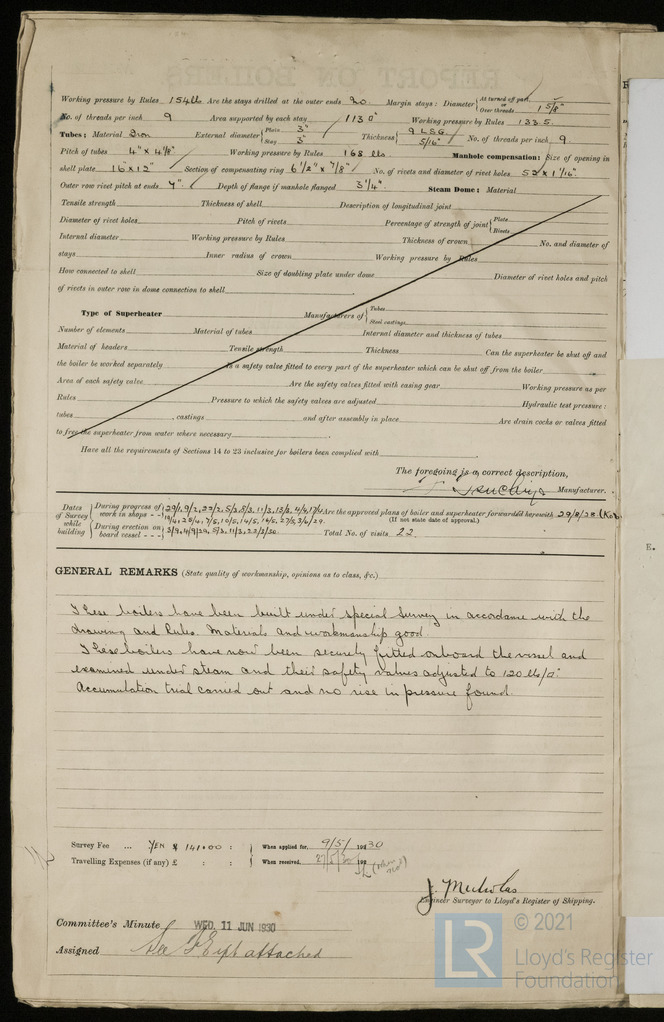 Working pressure by Rules 154 lb Are the stays drilled at the outer ends No Margin stays: Diameter { At turned off part or Over threads 1 5/8"
No. of threads per inch 9 Area supported by each stay 113 □" Working pressure by Rules 133.5
Tubes: Material Iron External diameter { Plain 3" Stay 3" Thickness { 9 LSG 5/16" No. of threads per inch 9
Pitch of tubes 4" x 4 1/8" Working pressure by Rules 168 lbs. Manhole compensation: Size of opening in
shell plate 16" x 12" Section of compensating ring 6 1/2" x 7/8" No. of rivets and diameter of rivet holes 52 x 1 1/16".
Outer row rivet pitch at ends 7" Depth of flange if manhole flanged 3 1/4" Steam Dome: Material
Tensile strength Thickness of shell Description of longitudinal joint
Diameter of rivet holes Pitch of rivets Percentage of strength of joint { Plate Rivets
Internal diameter Working pressure by Rules Thickness of crown No. and diameter of
stays Inner radius of crown Working pressure by Rules
How connected to shell Size of doubling plate under dome Diameter of rivet holes and pitch
of rivets in outer row in dome connection to shell
Type of Superheater Manufacturers of { Tubes Steel castings
Number of elements Material of tubes Internal diameter and thickness of tubes
Material of headers Tensile strength Thickness Can the superheater be shut off and
the boiler be worked separately Is a safety valve fitted to every part of the superheater which can be shut off from the boiler
Area of each safety valve Are the safety valves fitted with easing gear Working pressure as per
Rules Pressure to which the safety valves are adjusted Hydraulic test pressure:
tubes , castings and after assembly in place Are drain cocks or valves fitted
to free the superheater from water where necessary
Have all the requirements of Sections 14 to 23 inclusive for boilers been complied with
The foregoing is a correct description,
Manufacturer.
Dates of Survey while building { During progress of work in shops - - 29/1, 9/2, 22/2, 5/3, 8/3, 11/3, 13/3, 4/4, 17/4 Are the approved plans of boiler and superheater forwarded herewith 29/8/28 (Kob
19/4, 25/4, 7/5, 10/5, 14/5, 16/5, 27/5, 3/6/29. (If not state date of approval.)
During erection on board vessel - - - 3/9, 4/9/29, 5/3, 11/3, 22/3/30. Total No. of visits 22.
GENERAL REMARKS (State quality of workmanship, opinions as to class, &c.)
These boilers have been built under special survey in accordance with the
drawing and Rules. Materials and workmanship good.
These boilers have now been securely fitted onboard the vessel and
examined under steam and their safety valves adjusted to 120 lb/□".
Accumulation trial carried out and no rise in pressure found.
Survey Fee ... YEN £ 141.00 : When applied for, 9/5/ 1930
Travelling Expenses (if any) £ : : When received, 27/5/30 192
J. Nicholas
Engineer Surveyor to Lloyd's Register of Shipping.
Committee's Minute WED. 11 JUN 1930
Assigned See F.E. rpt attached
© 2021
LR
Lloyd's Register
Foundation